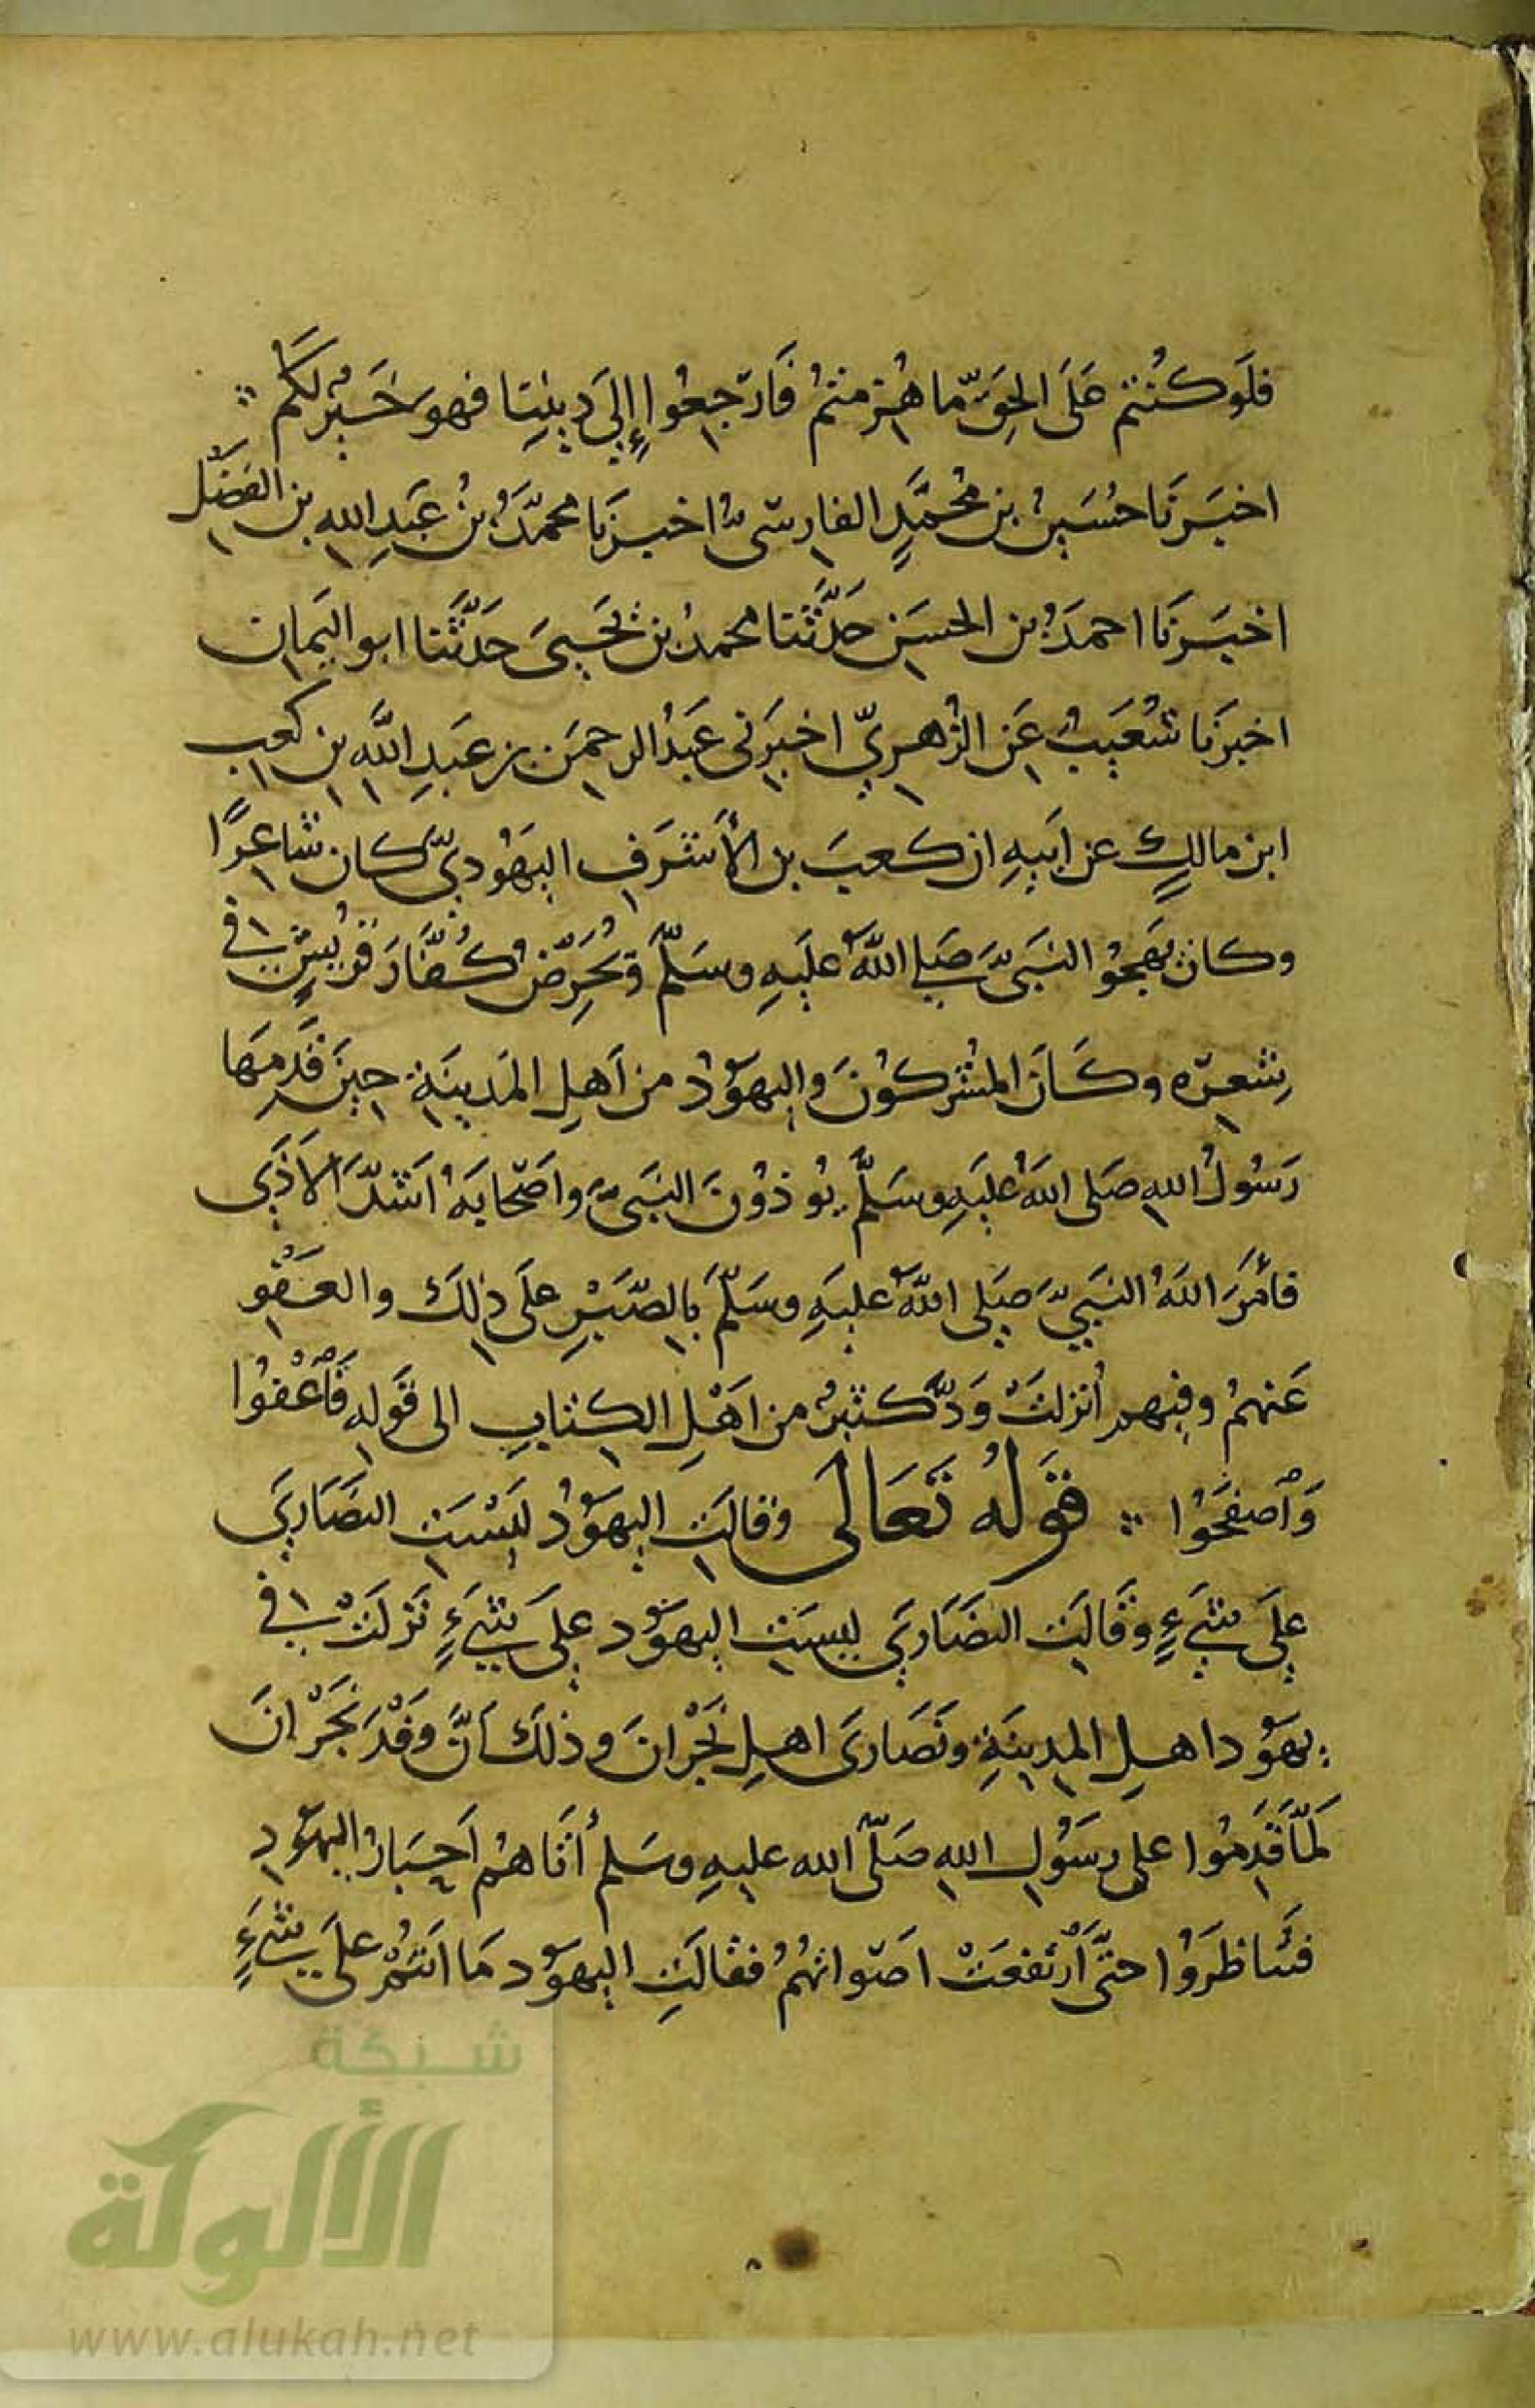 فلَو كُنتم عَلَى الحِقّ ما هُزمتمُ فَارجِعُوا إِلىَ دينِنا فهوَ خَيرٌ لكَم
اخبَرنَا حُسَينُ بن مُحمَّدٍ الفارسىُّ اخبرنَا محمدَُ بنُ عَبدِ الله بن الفضل
اخبَرنَا احمدَُ بن الحسَن حَدَّثَنا محمدُ بن يَحيىَ حَدَّثَنا ابو اليَمان
اخبرَنا شُعَيبُ عَن الزُهريّ اخبَرَنى عَبدُ الرحمَن بن عَبدِ اللَّه بن كعب
ابن مالكٍ عن اَبيهِ ان كعبَ بن الأشرَفِ اليهَوُديَّ كان شاعرًا
وكان يَهجُوا النبَىَّ صَلى اللهُ عليَهِ وسَلمّ ويُحرِّضُ كُفّارَ قرُيشٍ فى
شِعرِه وكَانَ المشُركوُنَ واليهَوُدُ من اَهلِ المَدينَةِ حِينَ قَدِمَها
رَسُولُ اللهِ صَلى اللهُ عَليَهِ وسَلَّم يُوذوُنَ النبَىَّ واَصحَابهَُ اَشدَّ الاَذَى
فأمَرَ اللهُ النبَيَّ صَلى اللهُ عليَهِ وسَلمَّ بالصَّبرِ علَى ذلكَ والعَفْوِ
عَنهمُ وفيهم أُنزلَتْ وَدَّ كثيرُ من اَهْلِ الكِتابِ الى قَولِهِ فَاعْفُوا
وَاصفَحُوا قَولُهُ تَعَالىَ وَقالَتِ اليهَوُدُ ليَسْتَِ النَصَاريَ
علَى شَيءٍ وقَالَتِ النصَارَي ليسَتِ اليهَوُد علَى شَيءٍ نَزلَتْ في
يهَوُد اهلِ المدينَةِ ونَصَارىَ اهلِ نَجْرانَ وذلكَ اَنَّ وَفْدَ نَجْرانَ
لَمّا قَدِمُوا على رسَوُلِ اللهِ صَلّى الله عليهِ وسَلم أتَاهمُ اَحبَارُ اليهَوُدِ
فتَناظرَوُا حتىَّ ارْتفعَتْ اصَواتهُمُ فقالَتِ اليهَوُد مَا انَتمُ علَى شَيءٍ
شبكة
الألوكة
www.alukah.net